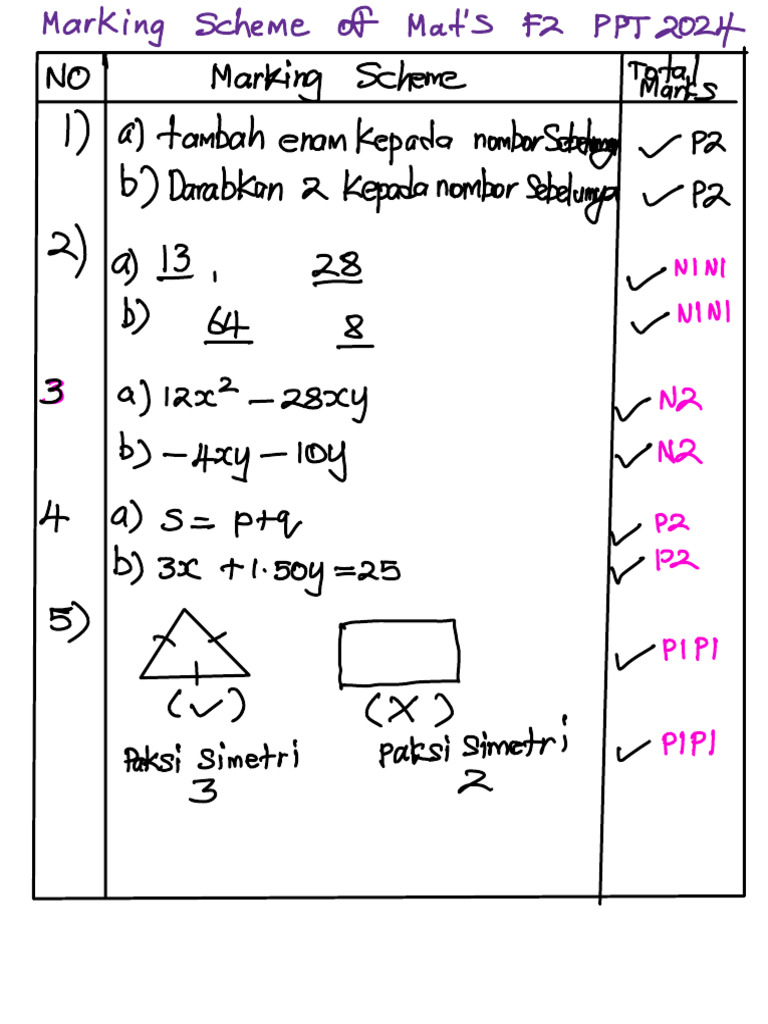 Marking Scheme of Mat's F2 PPT 2024
NO Marking Scheme Total Marks
1) a) tambah enam kepada nombor Sebelumnya ✓ P2
b) Darabkan 2 kepada nombor Sebelumya ✓ P2
2) a) 13 , 28 ✓ N1 N1
b) 64 8 ✓ N1N1
3 a) 12x² - 28xy ✓ N2
b) -4xy - 10y ✓ N2
4 a) s = p+q ✓ P2
b) 3x + 1.50y = 25 ✓ P2
5) ✓ P1P1
(✓) (X)
Paksi Simetri Paksi Simetri ✓ P1P1
3 2